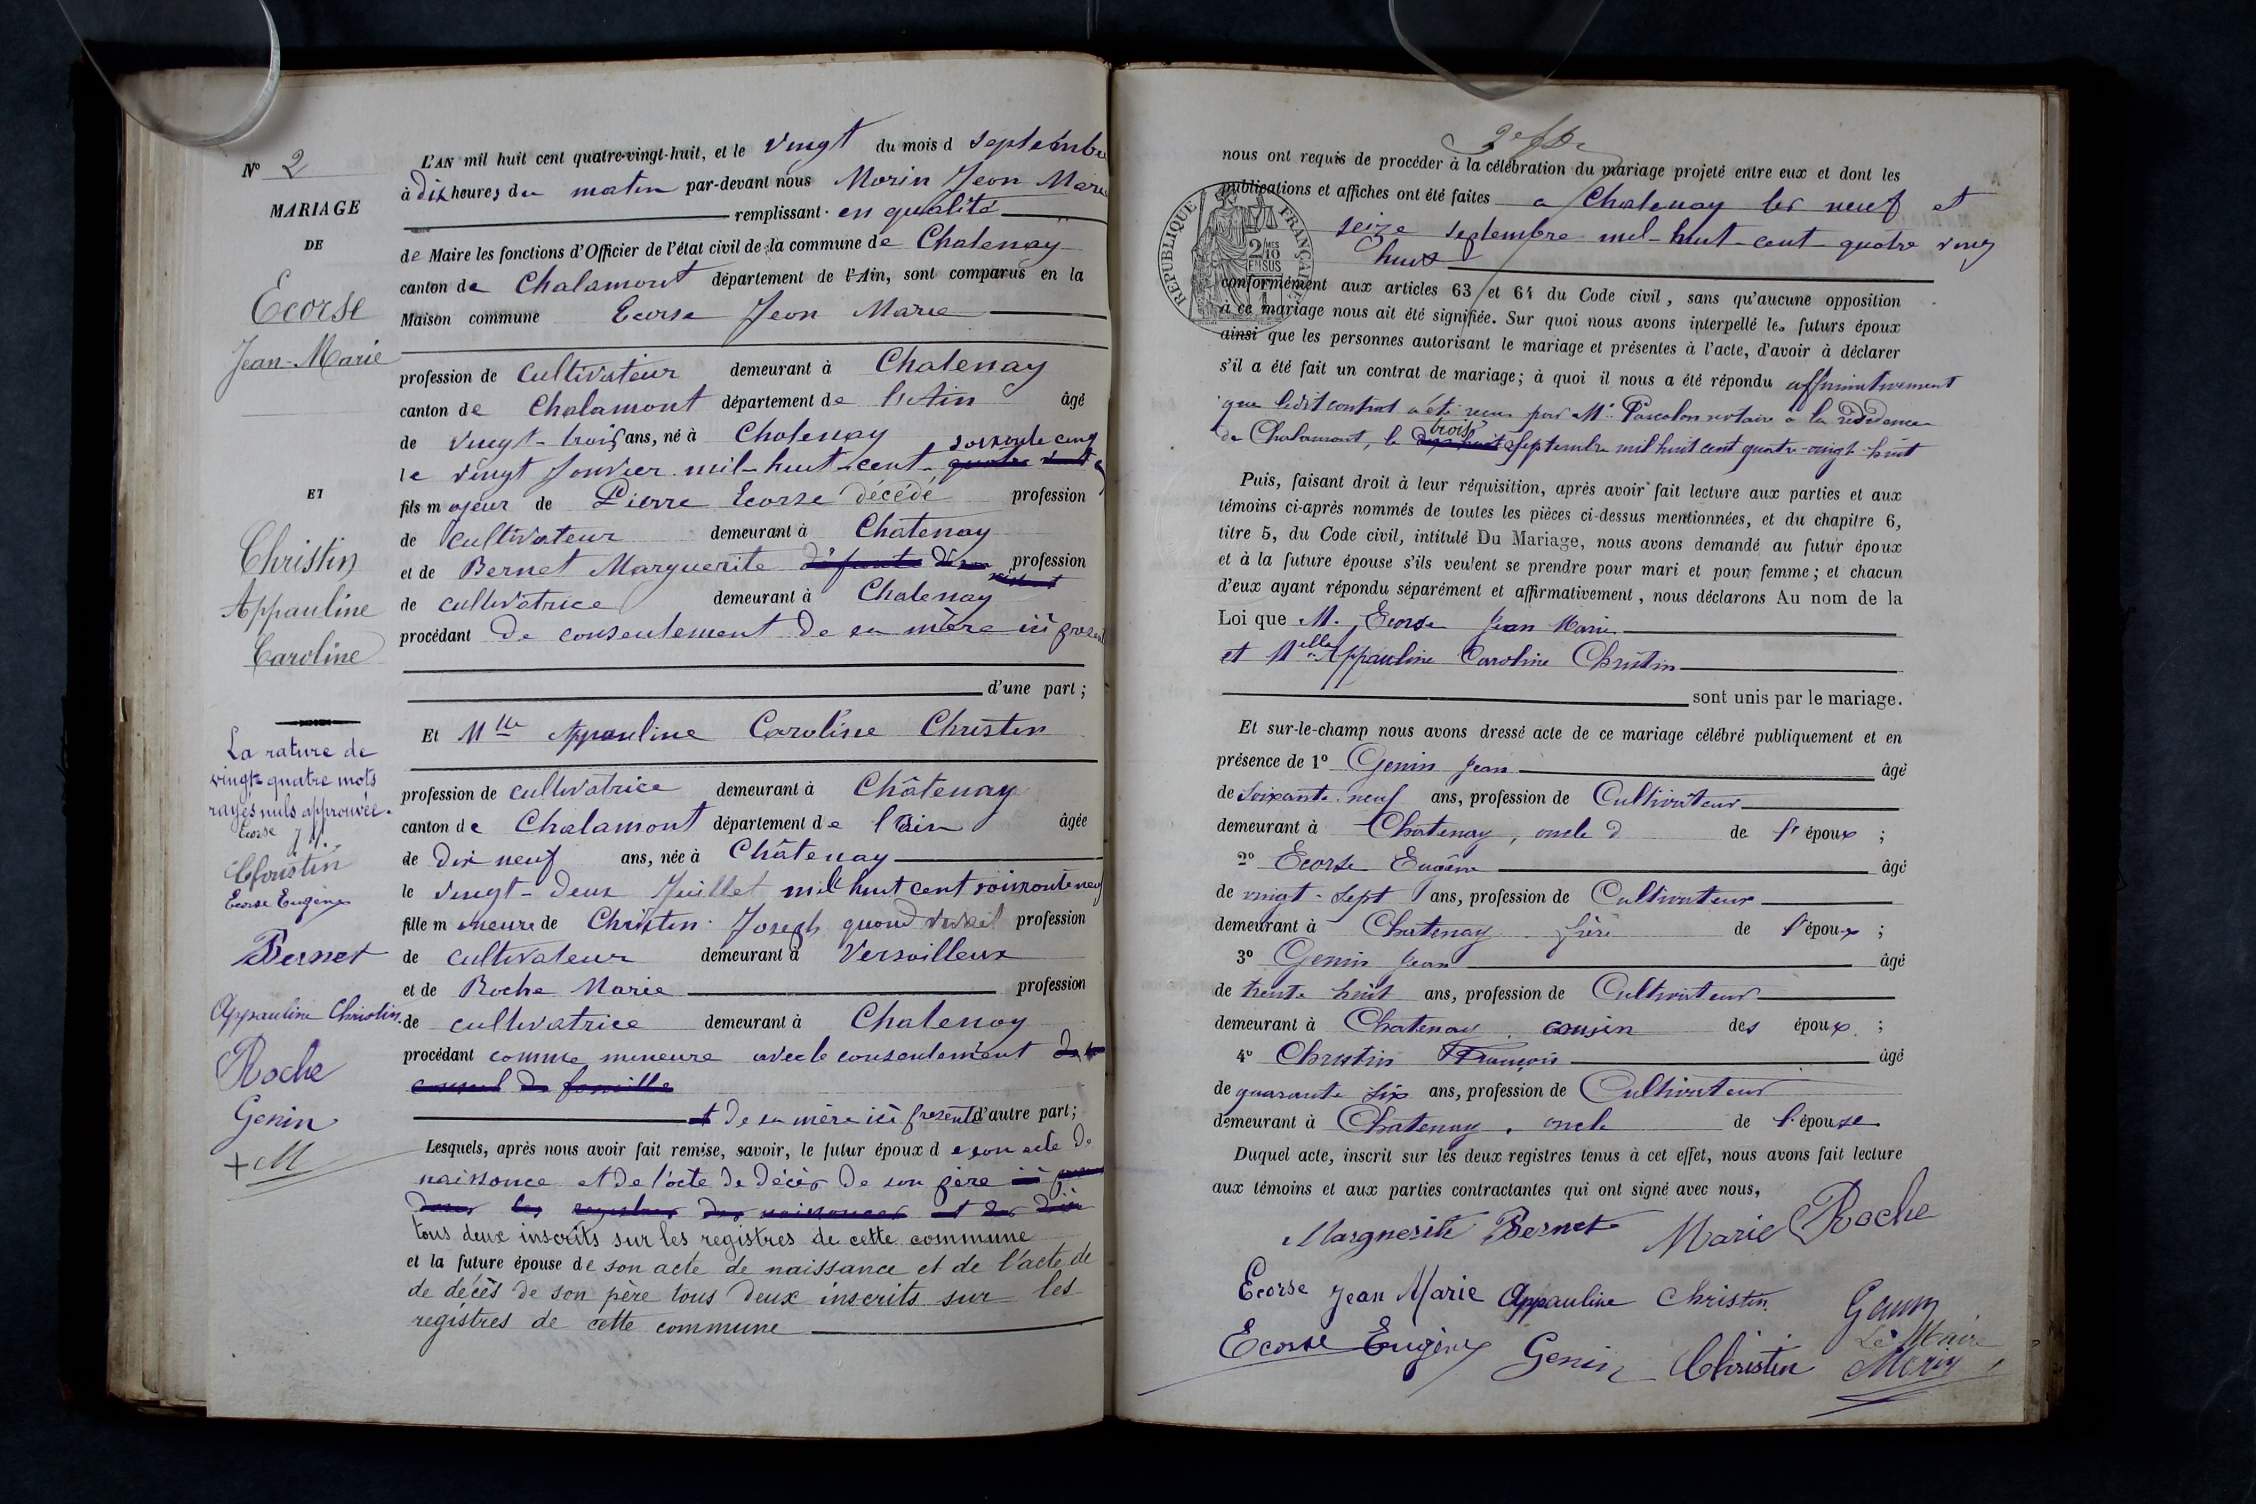 N° 2
MARIAGE
DE
Ecorse
Jean-Marie
ET
Christin
Appauline
Caroline
La rature de
vingt quatre mots
rayés nuls approuvée.
Ecorse J. M.
Christin
Ecorse Eugène
Bernet
Appauline Christin.
Roche
Genin
+ M
L'AN mil huit cent quatre-vingt-huit, et le vingt du mois d septembre
à dix heures du matin par-devant nous Morin Jean Marie
remplissant en qualité
de Maire les fonctions d'Officier de l'état civil de la commune de Chatenay
canton de Chalamont département de l'Ain, sont comparus en la
Maison commune Ecorse Jean Marie
profession de cultivateur demeurant à Chatenay
canton de Chalamont département de l'Ain âgé
de vingt-trois ans, né à Chatenay soixante cinq
le vingt Janvier mil-huit-cent quatre vingt
fils majeur de Pierre Ecorse décédé profession
de cultivateur demeurant à Chatenay
et de Bernet Marguerite défunte profession
de cultivatrice demeurant à Chatenay
procédant de consentement de sa mère ici présente
d'une part ;
Et Mlle Appauline Caroline Christin
profession de cultivatrice demeurant à Châtenay
canton de Chalamont département de l'ain âgée
de dix neuf ans, née à Châtenay
le vingt-deux Juillet mil huit cent soixante neuf
fille mineure de Christin Joseph quand vivait profession
de cultivateur demeurant à Versailleux
et de Roche Marie profession
de cultivatrice demeurant à Chatenay
procédant comme mineure avec le consentement de
conseil de famille
et de sa mère ici présente d'autre part ;
Lesquels, après nous avoir fait remise, savoir, le futur époux de son acte de
naissance et de l'acte de décès de son père ici
dans les registres des naissances et des décès
tous deux inscrits sur les registres de cette commune
et la future épouse de son acte de naissance et de l'acte de
de décès de son père tous deux inscrits sur les
registres de cette commune
2e
nous ont requis de procéder à la célébration du mariage projeté entre eux et dont les
publications et affiches ont été faites a Chatenay les neuf et
seize septembre mil-huit-cent quatre vingt
huit
RÉPUBLIQUE FRANÇAISE
2/10
EN SUS
conformément aux articles 63 et 64 du Code civil, sans qu'aucune opposition
à ce mariage nous ait été signifiée. Sur quoi nous avons interpellé les futurs époux
ainsi que les personnes autorisant le mariage et présentes à l'acte, d'avoir à déclarer
s'il a été fait un contrat de mariage ; à quoi il nous a été répondu affirmativement
que ledit contrat a été reçu par Me Pascalon notaire à la résidence
trois
de Chalamont, le dix huit septembre mil huit cent quatre-vingt-huit
Puis, faisant droit à leur réquisition, après avoir fait lecture aux parties et aux
témoins ci-après nommés de toutes les pièces ci-dessus mentionnées, et du chapitre 6,
titre 5, du Code civil, intitulé Du Mariage, nous avons demandé au futur époux
et à la future épouse s'ils veulent se prendre pour mari et pour femme ; et chacun
d'eux ayant répondu séparément et affirmativement, nous déclarons Au nom de la
Loi que M. Ecorse Jean Marie
et Melle Appauline Caroline Christin
sont unis par le mariage.
Et sur-le-champ nous avons dressé acte de ce mariage célébré publiquement et en
présence de 1° Genin Jean âgé
de soixante-neuf ans, profession de Cultivateur
demeurant à Chatenay, oncle d de l'époux ;
2° Ecorse Eugène âgé
de vingt-sept ans, profession de Cultivateur
demeurant à Chatenay frère de l'époux ;
3° Genin Jean âgé
de trente huit ans, profession de Cultivateur
demeurant à Chatenay cousin des époux ;
4° Christin François âgé
de quarante six ans, profession de Cultivateur
demeurant à Chatenay, oncle de l'épouse
Duquel acte, inscrit sur les deux registres tenus à cet effet, nous avons fait lecture
aux témoins et aux parties contractantes qui ont signé avec nous,
Marguerite Bernet Marie Roche
Ecorse Jean Marie Appauline Christin Genin
Le Maire
Ecorse Eugène Genin Christin Morin